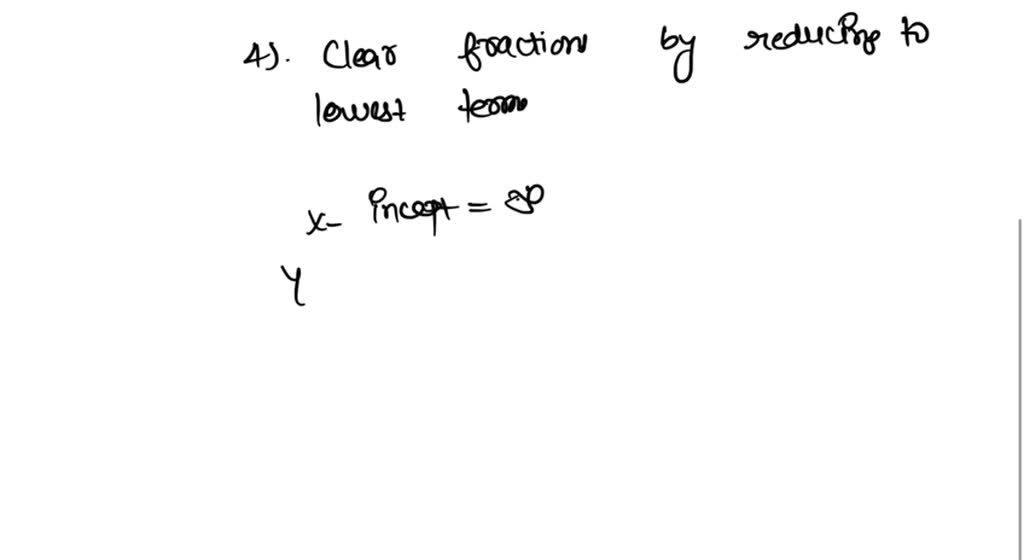 4). Clear fraction by reducing to
lowest term
x- incept =
Y